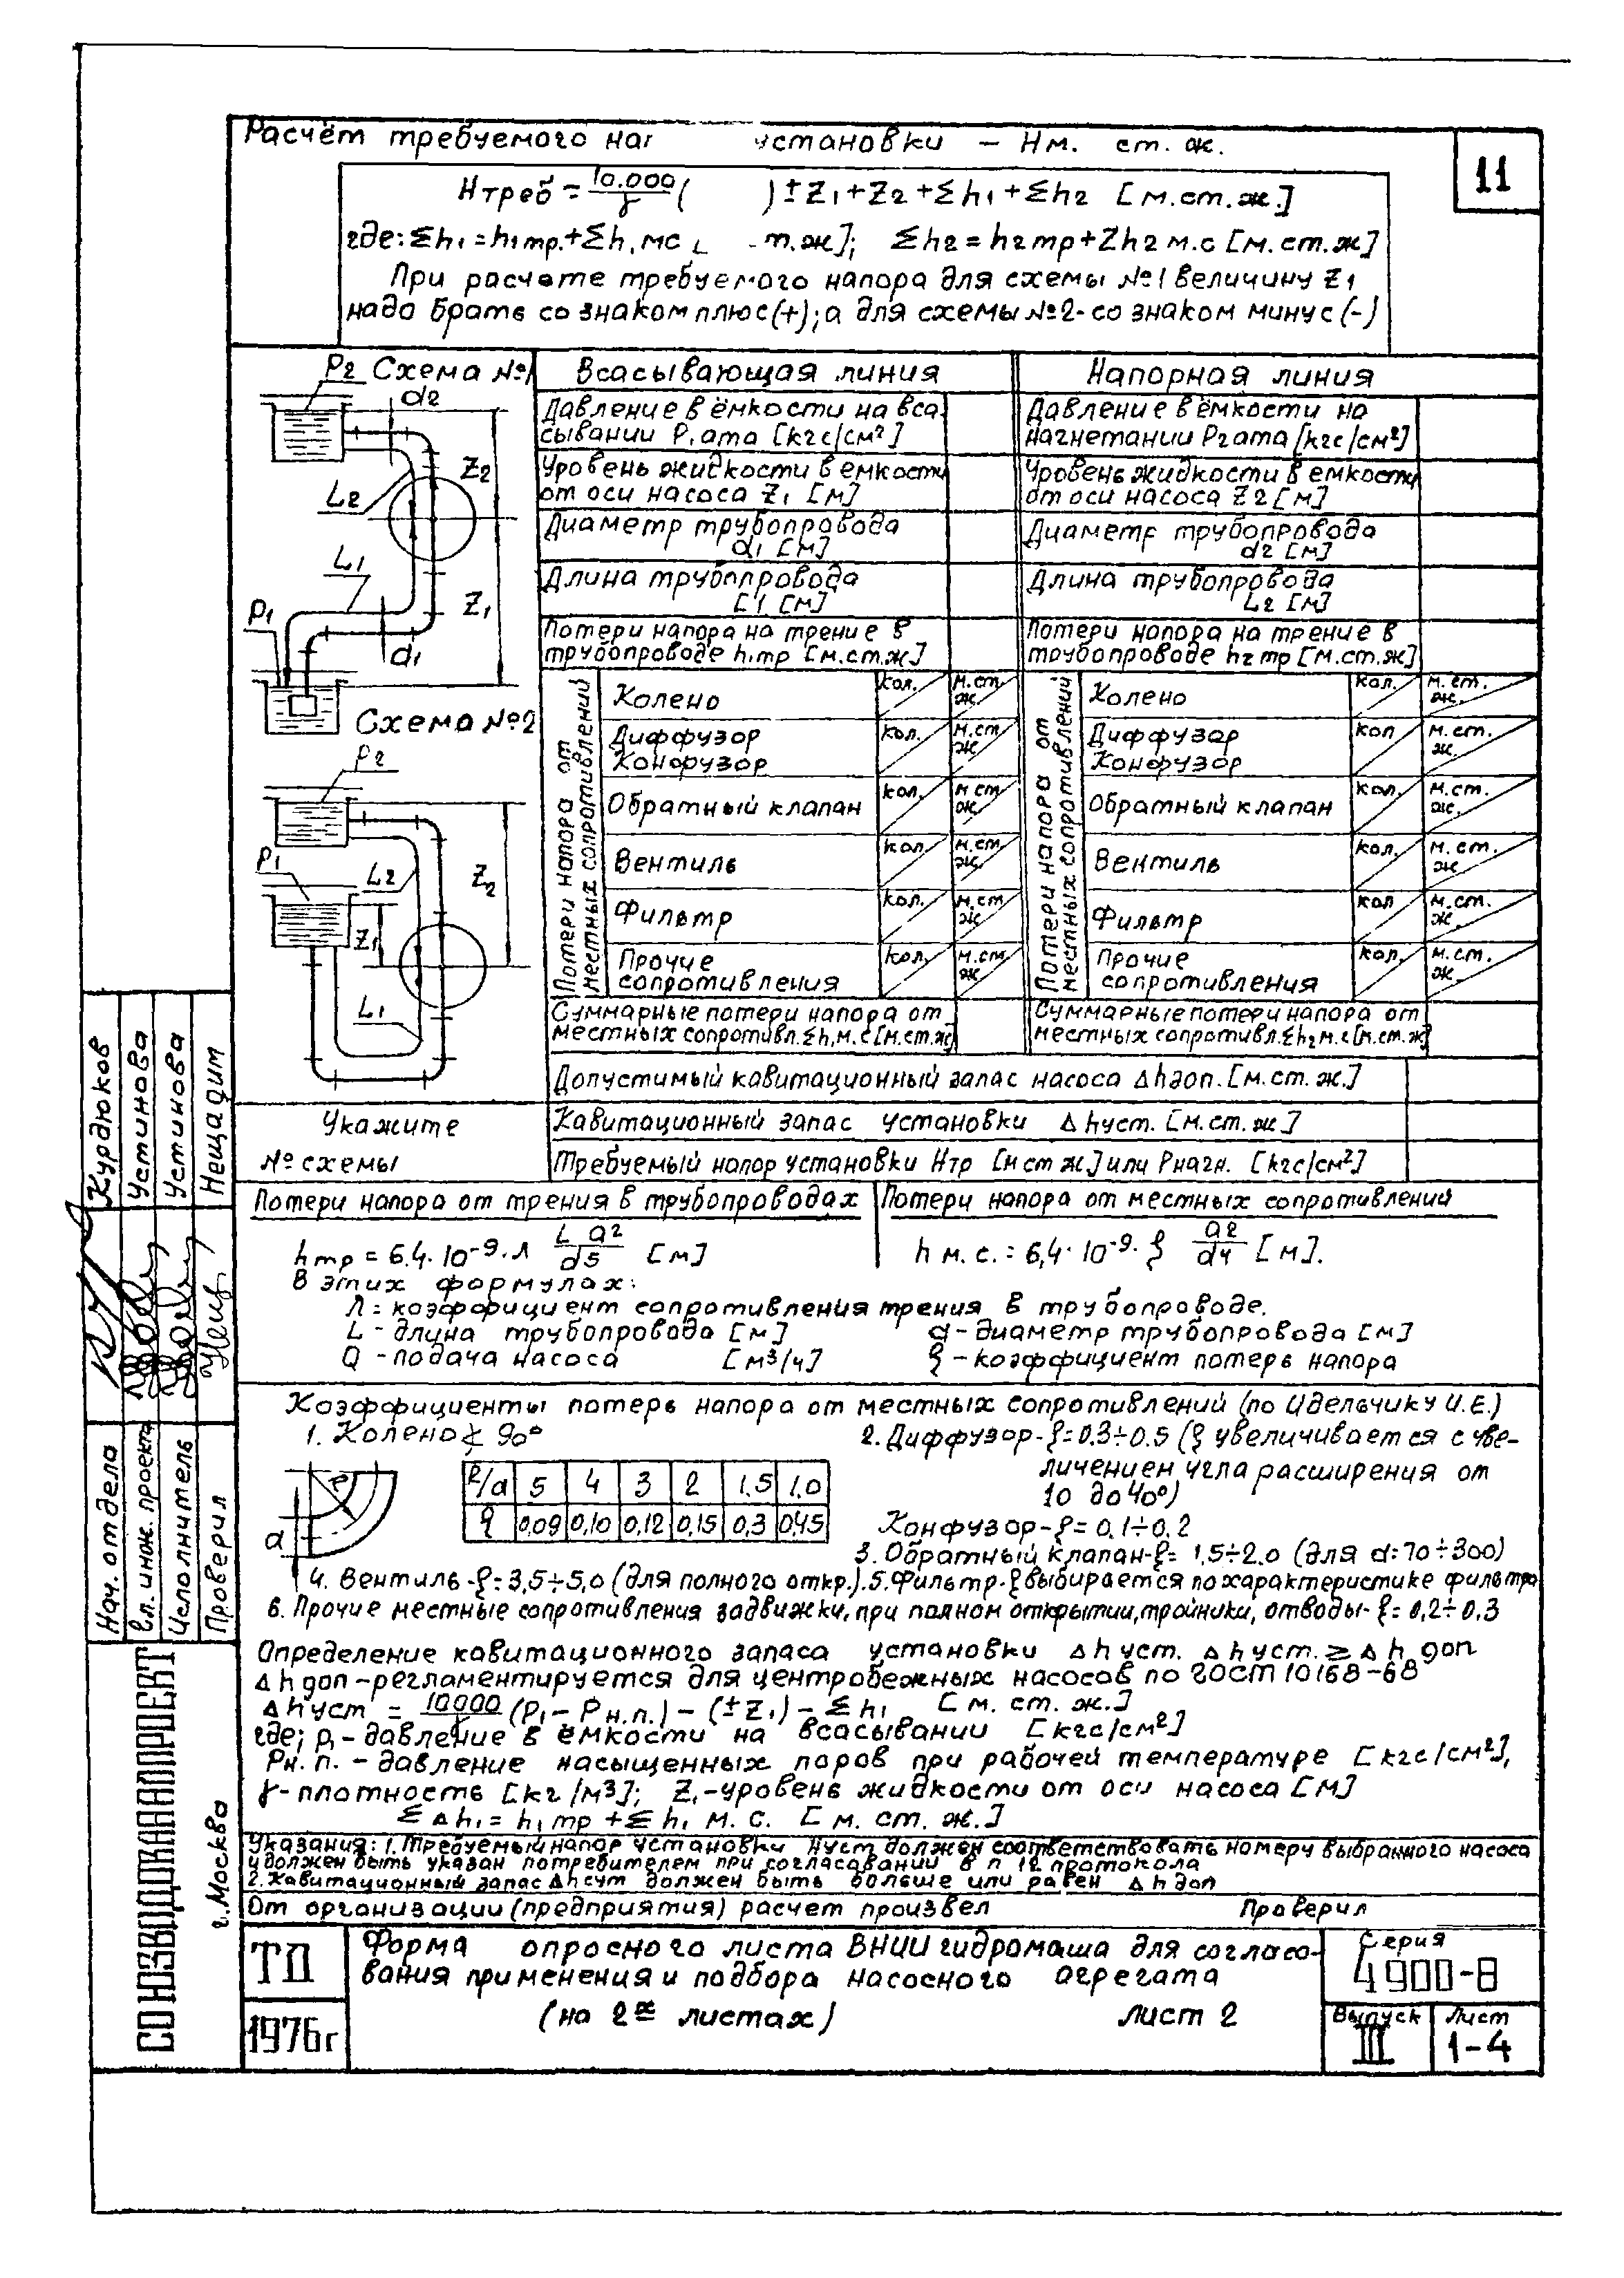 Расчёт требуемого установки – Hм. ст. ж.
11
Hтреб = 10.000/γ ( ) ± Z1 + Z2 + Σh1 + Σh2 [м.ст.ж.]
где: Σh1 = h1тр. + Σh1мс т.ж]; Σh2 = h2тр + Σh2 м.с [м.ст.ж]
При расчете требуемого напора для схемы №1 величину Z1
надо брать со знаком плюс(+); а для схемы №2- со знаком минус(-)
P2 Схема №1
d2
Z2
L2
L1
Z1
P1
d1
Схема №2
P2
P1
L2
Z2
Z1
L1
Укажите
№ схемы
Всасывающая линия
Напорная линия
Давление в ёмкости на вса-
сывании P1 ата [кгс/см²]
Давление в ёмкости на
нагнетании P2 ата [кгс/см²]
Уровень жидкости в емкости
от оси насоса Z1 [м]
Уровень жидкости в емкости
от оси насоса Z2 [м]
Диаметр трубопровода
d1 [м]
Диаметр трубопровода
d2 [м]
Длина трубопровода
L1 [м]
Длина трубопровода
L2 [м]
Потери напора на трение в
трубопроводе h1тр [м.ст.ж]
Потери напора на трение в
трубопроводе h2тр [м.ст.ж]
Потери напора от
местных сопротивлений
Колено кол. м.ст. ж.
Диффузор кол. м.ст ж
Конфузор
Обратный клапан кол. м.ст ж
Вентиль кол. м.ст ж
Фильтр кол. м.ст ж
Прочие кол. м.ст. ж
сопротивления
Потери напора от
местных сопротивлений
Колено кол. м.ст. ж.
Диффузор кол м.ст. ж.
Конфузор
Обратный клапан кол. м.ст. ж.
Вентиль кол. м.ст. ж
Фильтр кол м.ст. ж
Прочие кол. м.ст. ж
сопротивления
Суммарные потери напора от
местных сопротивл. Σh1м.с [м.ст.ж]
Суммарные потери напора от
местных сопротивл. Σh2м.с [м.ст.ж]
Допустимый кавитационный запас насоса Δhдоп. [м.ст.ж.]
Кавитационный запас установки Δhуст. [м.ст.ж.]
Требуемый напор установки Hтр [м ст ж] или Pнагн. [кгс/см²]
Потери напора от трения в трубопроводах
Потери напора от местных сопротивлений
hтр = 6.4·10⁻⁹·λ L Q²/d5 [м]
h м.с. = 6,4·10⁻⁹·ξ Q2/d4 [м].
В этих формулах:
λ = коэффициент сопротивления трения в трубопроводе.
L - длина трубопровода [м] d - диаметр трубопровода [м]
Q - подача насоса [м³/ч] ξ - коэффициент потерь напора
Коэффициенты потерь напора от местных сопротивлений (по Идельчику И.Е.)
1. Колено ∢ 90°
R
d
R/d 5 4 3 2 1.5 1.0
ξ 0,09 0,10 0,12 0,15 0,3 0,45
2. Диффузор - ξ = 0.3÷0.5 (ξ увеличивается с уве-
личением угла расширения от
10 до 40°)
Конфузор - ξ = 0.1÷0.2
3. Обратный клапан - ξ = 1,5÷2.0 (для d = 70÷300)
4. Вентиль - ξ = 3,5÷5,0 (для полного откр.). 5. Фильтр - ξ выбирается по характеристике фильтра
6. Прочие местные сопротивления задвижки, при полном открытии, тройники, отводы - ξ = 0,2÷0,3
Определение кавитационного запаса установки Δhуст. Δhуст. ≥ Δh доп
Δh доп - регламентируется для центробежных насосов по ГОСТ 10168-68
Δhуст = 10000/γ (P1 - Pн.п.) - (±Z1) - Σh1 [м. ст. ж.]
где; p1 - давление в ёмкости на всасывании [кгс/см²]
Pн.п. - давление насыщенных паров при рабочей температуре [кгс/см²],
γ - плотность [кг/м³]; Z1 - уровень жидкости от оси насоса [м]
ΣΔh1 = h1тр + Σh1 м.с. [м. ст. ж.]
Указания: 1. Требуемый напор установки Hуст должен соответствовать номеру выбранного насоса
и должен быть указан потребителем при согласовании в п 12 протокола
2. Кавитационный запас Δhсут должен быть больше или равен Δh доп
От организации (предприятия) расчет произвел Проверил
ТП
1976г
Форма опросного листа ВНИИгидромаша для согласо-
вания применения и подбора насосного агрегата
(на 2х листах) лист 2
Серия
4900-8
Выпуск
III
Лист
1-4
Курдюков
Устинова
Устинова
Нещадим
Нач. отдела
Гл. инж. проекта
Исполнитель
Проверил
СОЮЗВОДОКАНАЛПРОЕКТ
г. Москва